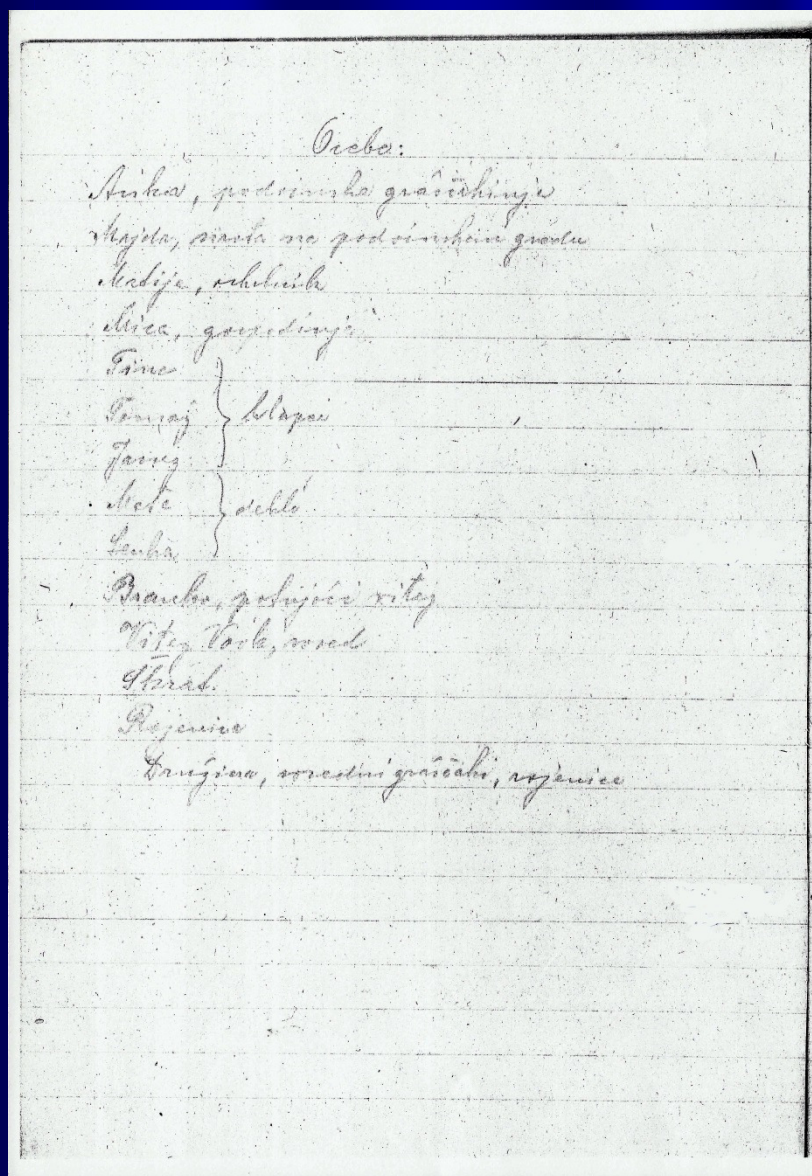 Osebe:
Anka, podsinska graščakinja
Majda, sirota na podsinskem gradu
Matija, oskrbnik
Mica, gospodinja
Tine
Tomaž } hlapci
Janez
Meta } dekli
Lenka
Branko, potujoči vitez
Vitez Volk, sosed
Škrat.
Rojenica
Družina, sosedni graščaki, rojenice